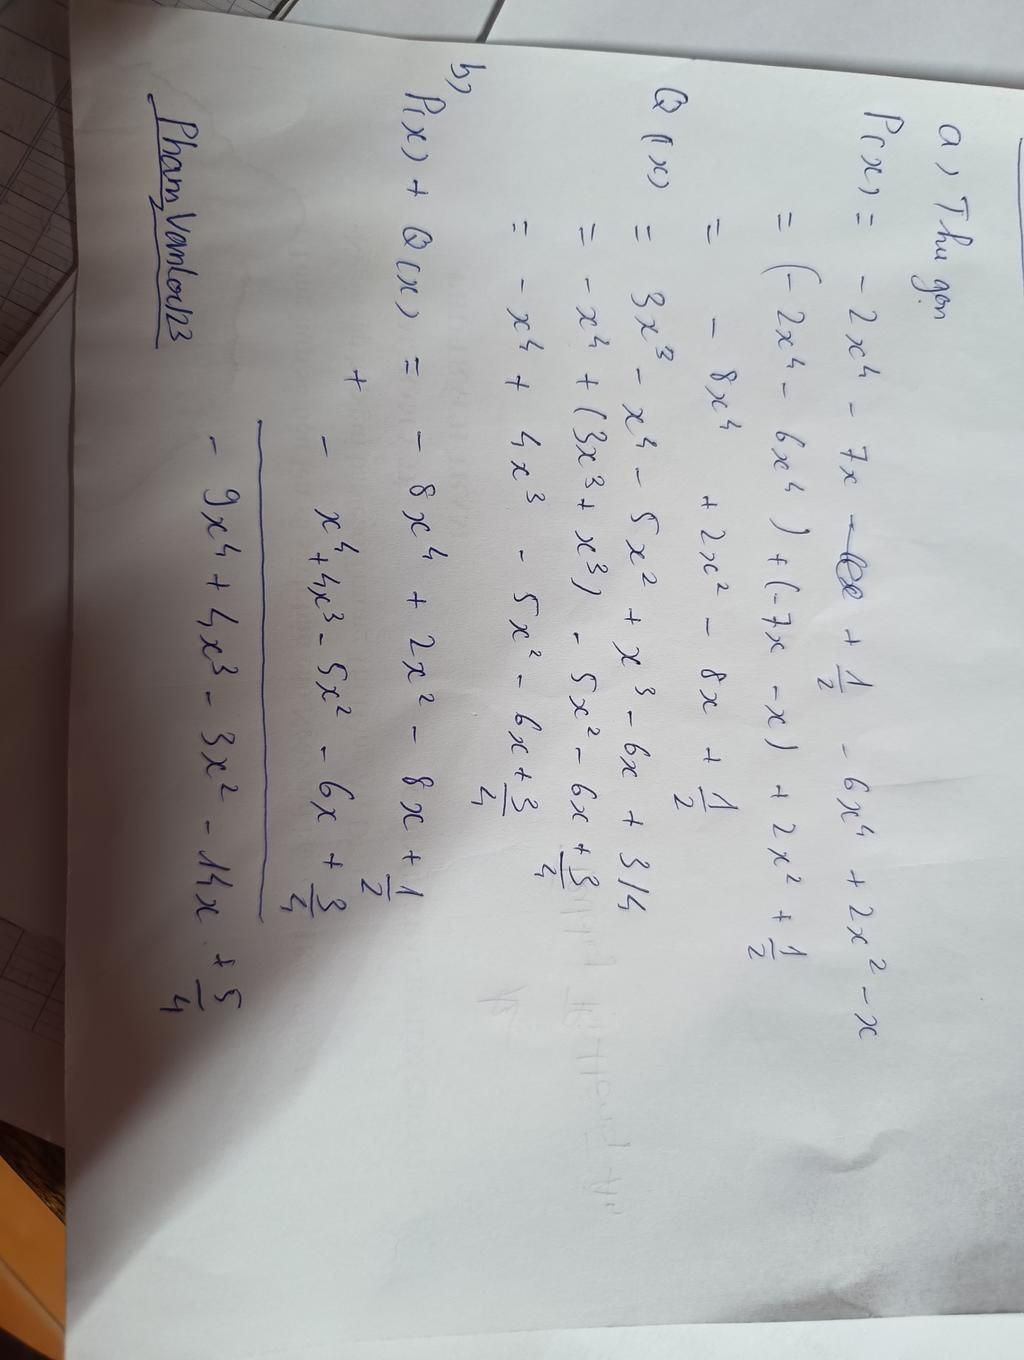 a) Thu gọn
P(x) = - 2x⁴ - 7x + 1/2 - 6x⁴ + 2x² - x
= (- 2x⁴ - 6x⁴) + (-7x - x) + 2x² + 1/2
= - 8x⁴ + 2x² - 8x + 1/2
Q(x) = 3x³ - x⁴ - 5x² + x³ - 6x + 3/4
= - x⁴ + (3x³ + x³) - 5x² - 6x + 3/4
= - x⁴ + 4x³ - 5x² - 6x + 3/4
b)
P(x) + Q(x) = - 8x⁴ + 2x² - 8x + 1/2
+
- x⁴ + 4x³ - 5x² - 6x + 3/4
- 9x⁴ + 4x³ - 3x² - 14x + 5/4